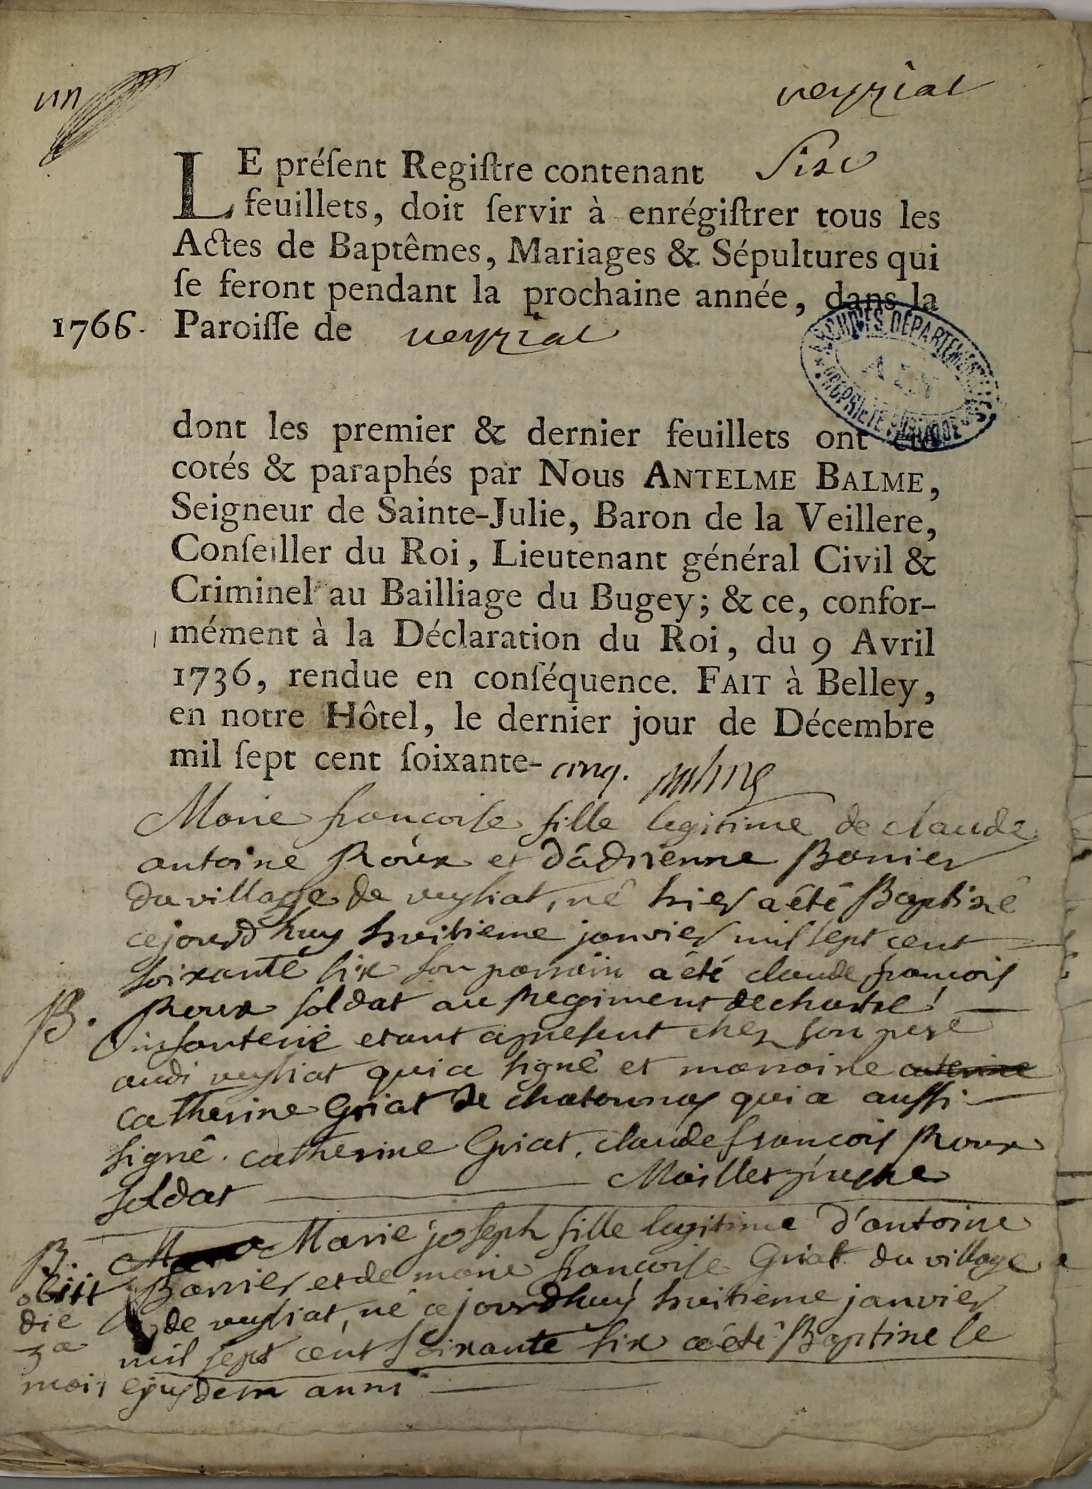 un
veyziat
LE préſent Regiſtre contenant Six
feuillets, doit ſervir à enrégiſtrer tous les
Actes de Baptêmes, Mariages & Sépultures qui
ſe feront pendant la prochaine année, dans la
1766. Paroiſſe de veyziat
ARCHIVES DÉPARTEMENTALES
AIN
PROPRIÉTÉ PUBLIQUE
dont les premier & dernier feuillets ont été
cotés & paraphés par Nous ANTELME BALME,
Seigneur de Sainte-Julie, Baron de la Veillere,
Conſeiller du Roi, Lieutenant général Civil &
Criminel au Bailliage du Bugey; & ce, confor-
mément à la Déclaration du Roi, du 9 Avril
1736, rendue en conſéquence. FAIT à Belley,
en notre Hôtel, le dernier jour de Décembre
mil ſept cent ſoixante-cinq. Balme
Marie francoise fille legitime de claude
antoine Roux et d'adrienne Barrier
du village de veysiat, né hier a été Baptisé
cejourd huy huitieme janvier mil sept cent
soixante six son parrain a été claude francois
B. Roux soldat au Regiment de
infanterie etant apresent chez son pere
audi veysiat qui a signé et marraine
catherine Griat de chatonnay qui a aussi
signé. catherine Griat. claude francois Roux
soldat Maillet
B. Marie joseph fille legitime d'antoine
obiit Barrier et de marie francoise Griat du village
die de veysiat, né cejourdhuy huitieme janvier
3a mil sept cent soixante six a été Baptise le
mais ejusdem anni